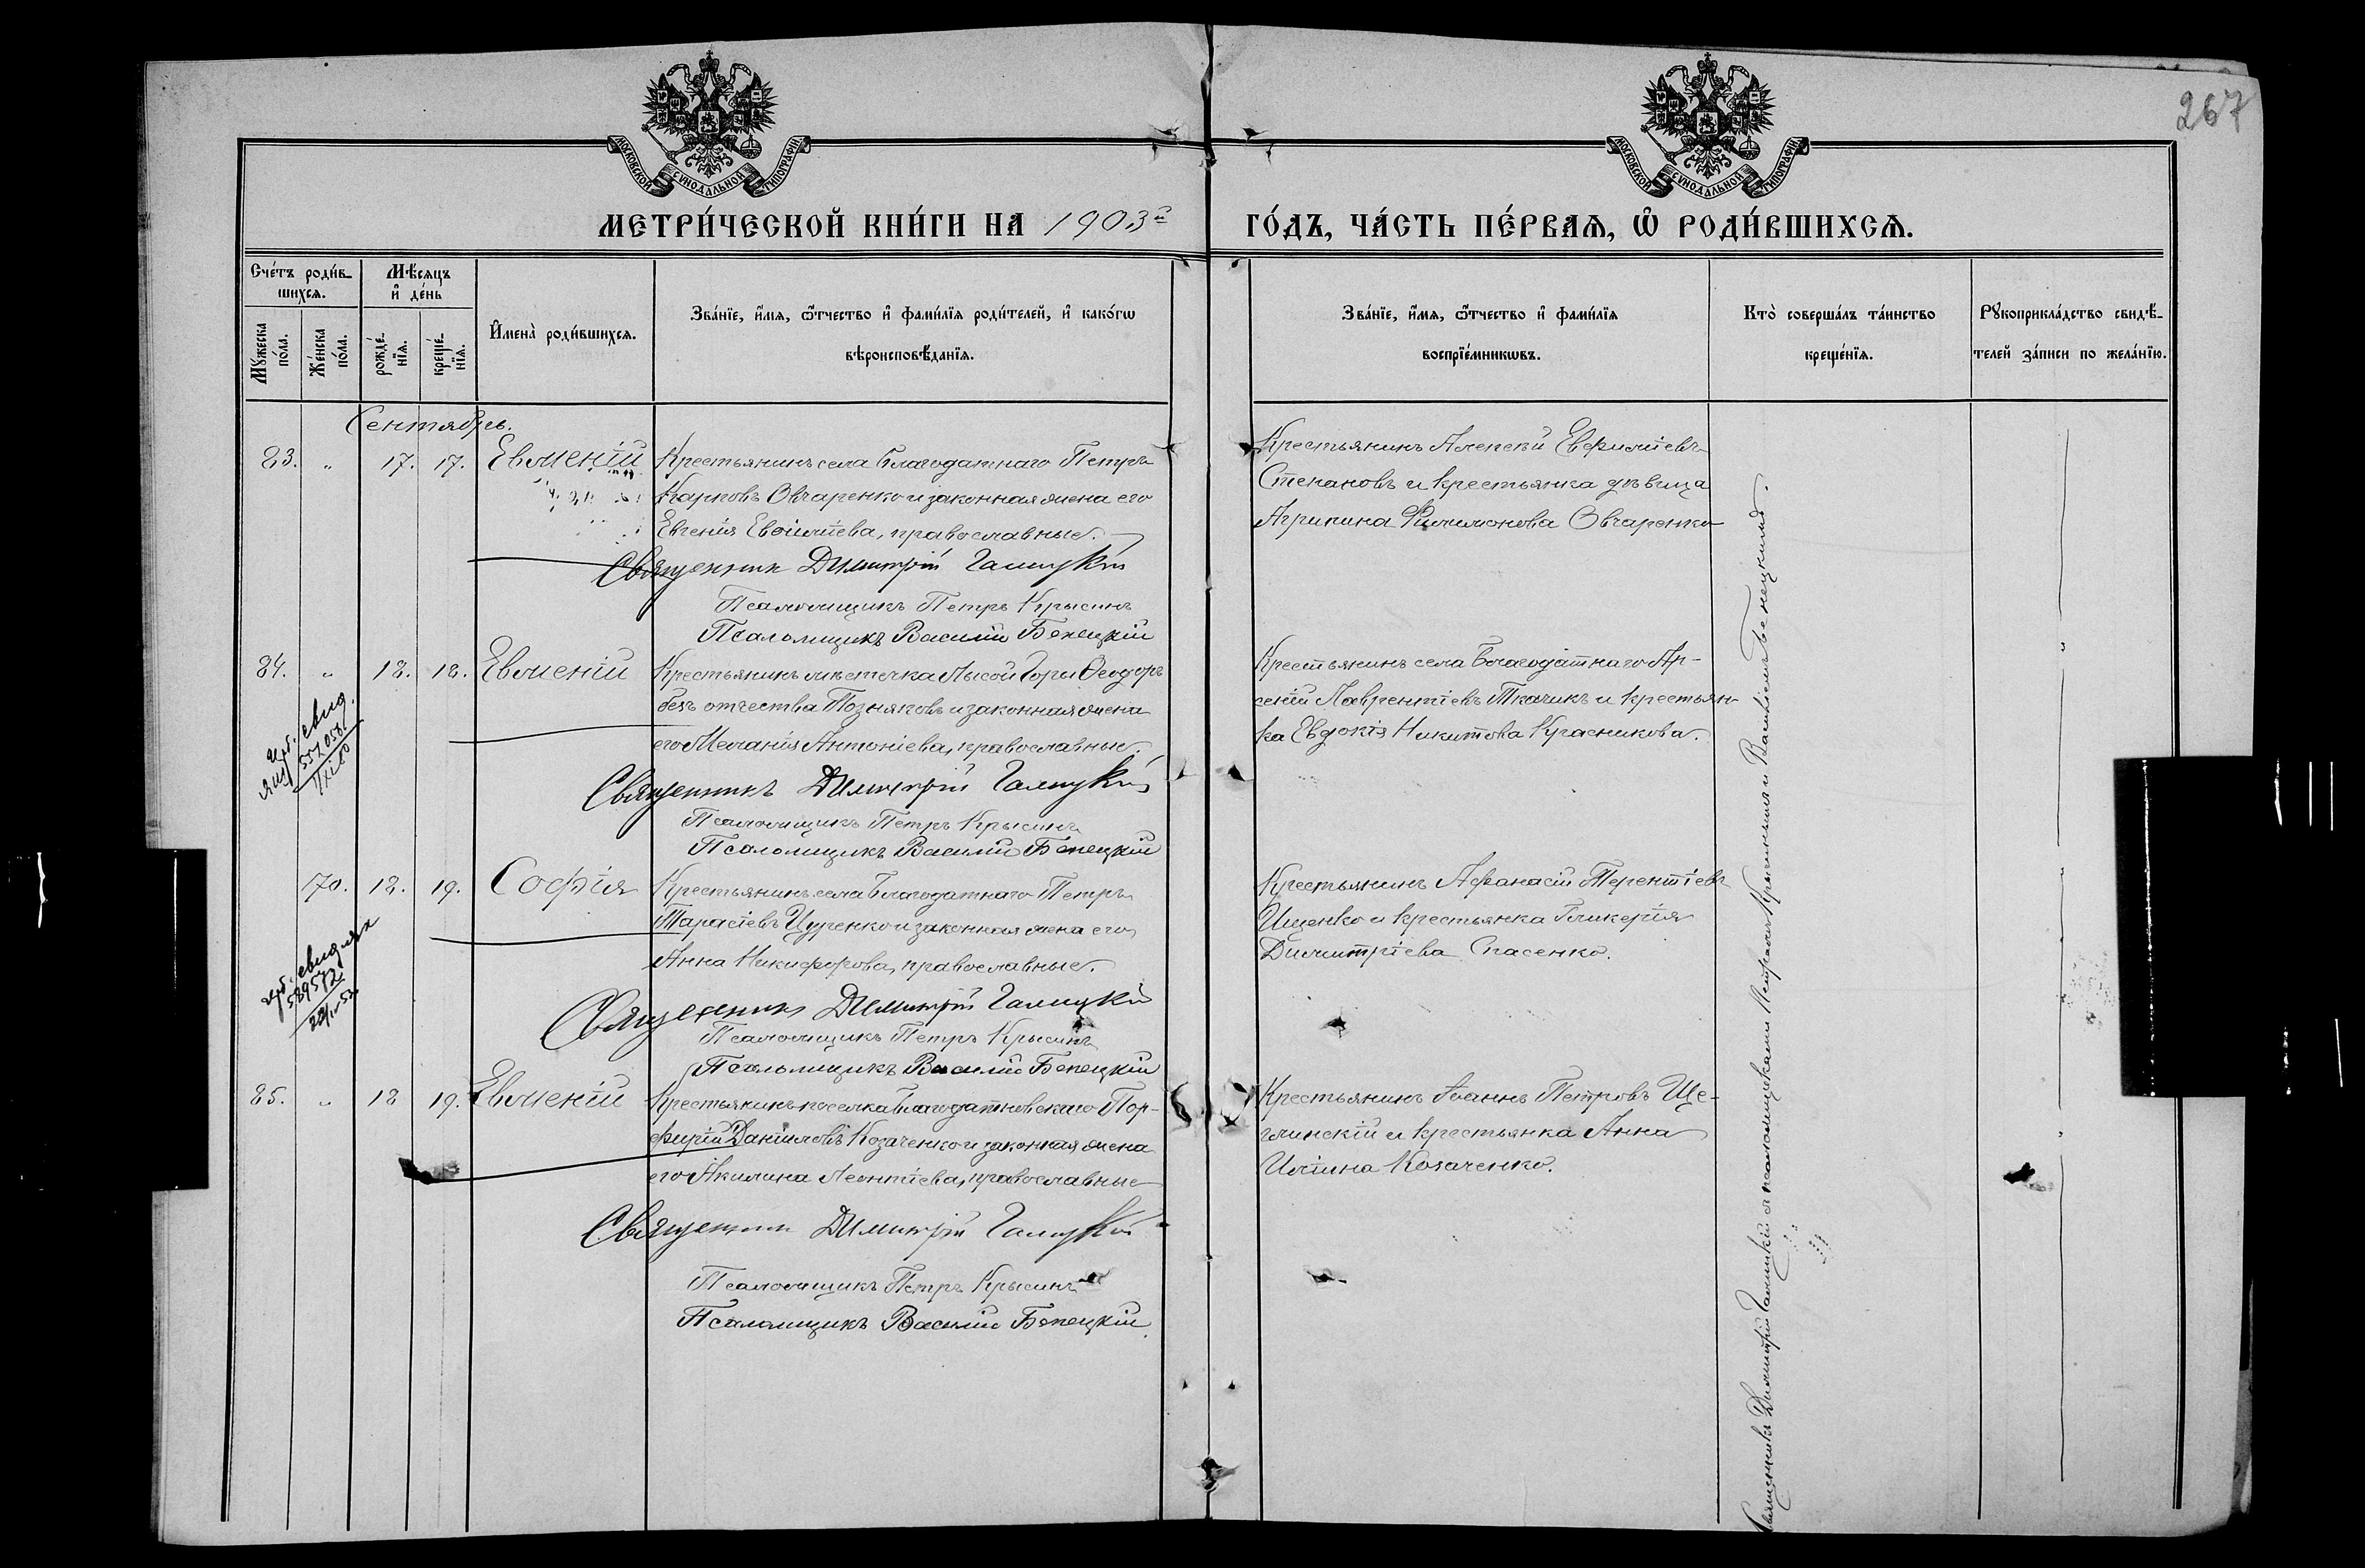 267
МОСКОВСКОЙ СѴНОДАЛЬНОЙ ТИПОГРАФІИ
МОСКОВСКОЙ СѴНОДАЛЬНОЙ ТИПОГРАФІИ
МЕТРИ́ЧЕСКОЙ КНИ́ГИ НА 1903й ГО́ДЪ, ЧА́СТЬ ПЕ́РВАѦ, Ѽ РОДИ́ВШИХСѦ.
Сче́тъ роди́в-
шихсѧ.
Мꙋ́жеска по́ла.
Же́нска по́ла.
Мѣ́сѧцъ
и҆ де́нь
рожде́-
нїѧ.
креще́-
нїѧ.
И҆мена̀ роди́вшихсѧ.
Зва́нїе, и҆́мѧ, ѻ҆́тчество и҆ фами́лїѧ роди́телей, и҆ како́гѡ
вѣроисповѣ́данїѧ.
Зва́нїе, и҆́мѧ, ѻ҆́тчество и҆ фами́лїѧ
воспрїе́мникѡвъ.
Кто̀ соверша́лъ та́инство
креще́нїѧ.
Рꙋкоприкла́дство свидѣ́-
телей за́писи по жела́нїю.
Сентябрь.
83. " 17. 17. Евменій
Крестьянинъ села Благодатнаго Петръ
Карповъ Овчаренко и законная жена его
Евгенія Евфиміева, православные.
Священникъ Димитрій Галицкій
Псаломщикъ Петръ Крысинъ
Псаломщикъ Василій Бенецкій
Крестьянинъ Алексѣй Евфиміевъ
Степановъ и крестьянка дѣвица
Агрипина Филимонова Овчаренко
84. " 18. 18. Евменій
Крестьянинъ мѣстечка Лысой Горы Ѳеодоръ
безъ отчества Позняковъ и законная жена
его Меланія Антоніева, православные.
Священникъ Димитрій Галицкій
Псаломщикъ Петръ Крысинъ
Псаломщикъ Василій Бенецкій
Крестьянинъ села Благодатнаго Ар-
сеній Лаврентіевъ Ткачикъ и крестьян-
ка Евдокія Никитова Красникова.
свид.
70. 18. 19. Софія
Крестьянинъ села Благодатнаго Петръ
Тарасіевъ Цуренко и законная жена его
Анна Никифорова, православные.
Священникъ Димитрій Галицкій
Псаломщикъ Петръ Крысинъ
Псаломщикъ Василій Бенецкій
Крестьянинъ Аѳанасій Терентіевъ
Ищенко и крестьянка Гликерія
Димитріева Спасенко.
529572
85. " 18 19. Евменій
Крестьянинъ поселка Благодатновскаго Пор-
фирій Даніиловъ Козаченко и законная жена
его Акилина Леонтіева, православные
Священникъ Димитрій Галицкій
Псаломщикъ Петръ Крысинъ
Псаломщикъ Василій Бенецкій
Крестьянинъ Іоаннъ Петровъ Ще-
глинскій и крестьянка Анна
Иліина Козаченко.
Священникъ Димитрій Галицкій съ псаломщиками Петромъ Крысинымъ и Василіемъ Бенецкимъ.